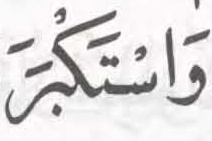 وَاسْتَكْبَرَ